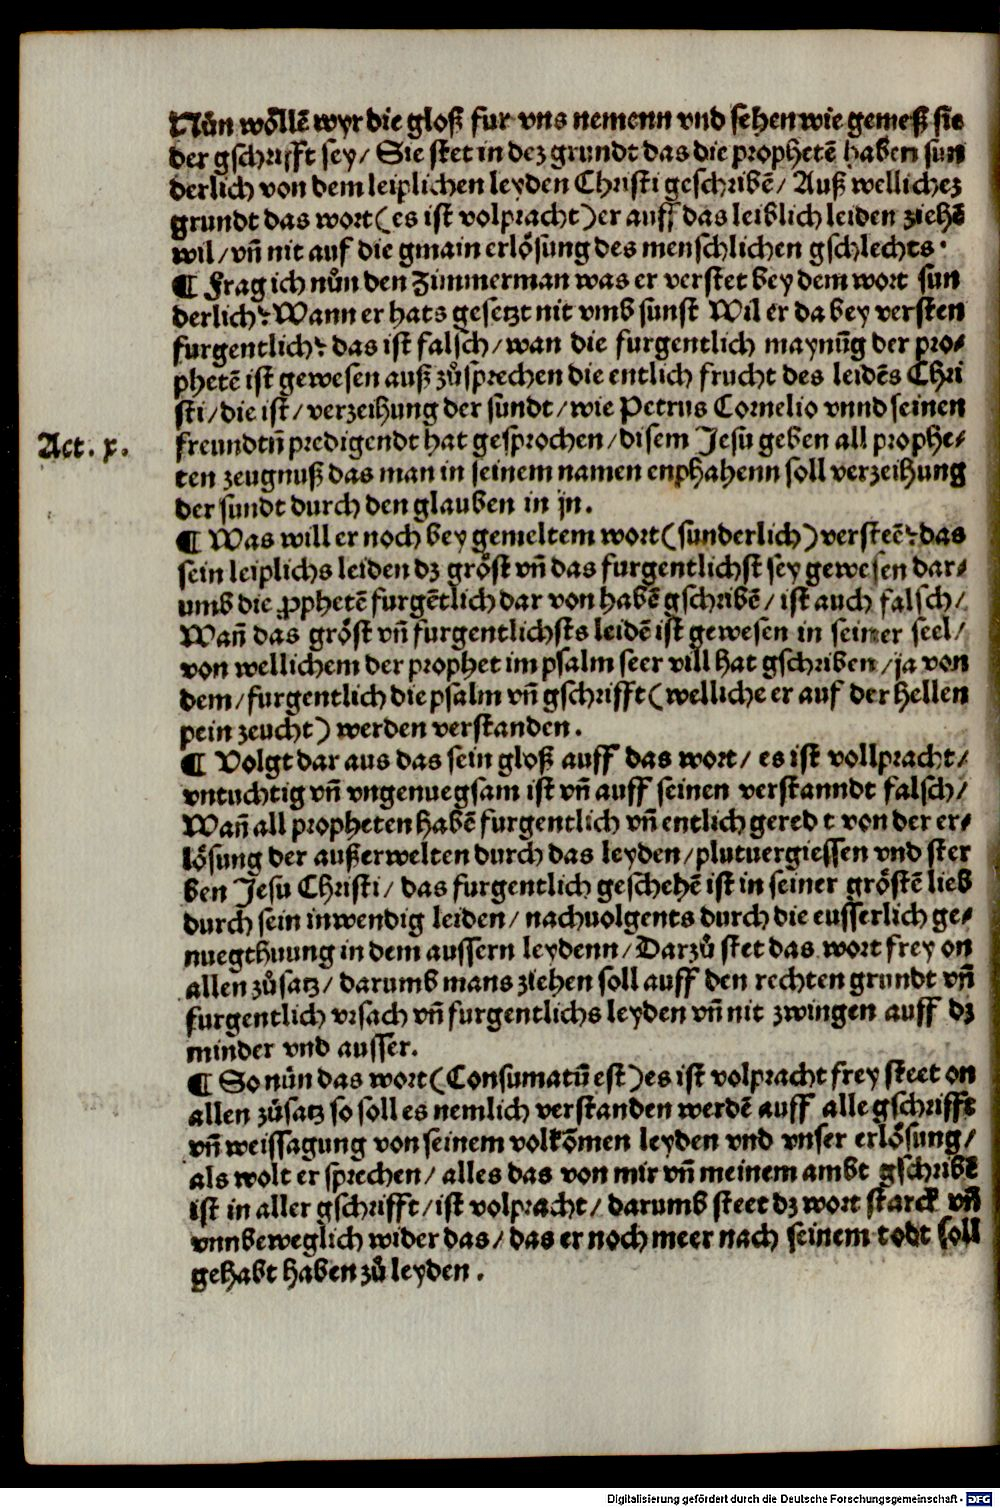 Nůn wöllē wyr die gloß fur vns nemenn vnd sehen wie gemeß sie
der gschrifft sey/ Sie stet in dez grundt das die prophetē haben sun
derlich von dem leiplichen leyden Christi geschribē/ Auß wellichez
grundt das wort (es ist volpracht) er auff das leiblich leiden ziehē
wil/ vn̄ nit auf die gmain erlösung des menschlichen gschlechts.
¶ Frag ich nůn den Zimmerman was er verstet bey dem wort sun
derlich? Wann er hats gesetzt nit vmb sunst Wil er da bey versten
furgentlich? das ist falsch/ wan die furgentlich maynūg der pro⸗
phetē ist gewesen auß zůsprechen die entlich frucht des leidēs Chri
sti/ die ist/ verzeihung der sundt/ wie Petrus Cornelio vnnd seinen
Act. x.
freundtn̄ predigendt hat gesprochen/ disem Jesu geben all prophe⸗
ten zeugnuß das man in seinem namen enphahenn soll verzeihung
der sundt durch den glauben in jn.
¶ Was will er noch bey gemeltem wort (sunderlich) versteē? das
sein leiplichs leiden dz gröst vn̄ das furgentlichst sey gewesen dar⸗
umb die ꝓphetē furgētlich dar von habē gschribē/ ist auch falsch/
Wan̄ das gröst vn̄ furgentlichsts leidē ist gewesen in seiner seel/
von wellichem der prophet im psalm seer vill hat gschriben/ ja von
dem/ furgentlich die psalm vn̄ gschrifft (welliche er auf der hellen
pein zeucht) werden verstanden.
¶ Volgt dar aus das sein gloß auff das wort/ es ist vollpracht/
vntuchtig vn̄ vngenuegsam ist vn̄ auff seinen verstanndt falsch/
Wan̄ all propheten habē furgentlich vn̄ entlich geredt von der er⸗
lösung der außerwelten durch das leyden/ plutuergiessen vnd ster
ben Jesu Christi/ das furgentlich geschehē ist in seiner gröstē lieb
durch sein inwendig leiden/ nachuolgents durch die eusserlich ge⸗
nuegthuung in dem aussern leydenn/ Darzů stet das wort frey on
allen zůsatz/ darumb mans ziehen soll auff den rechten grundt vn̄
furgentlich vrsach vn̄ furgentlichs leyden vn̄ nit zwingen auff dz
minder vnd ausser.
¶ So nůn das wort (Consumatū est) es ist volpracht frey steet on
allen zůsatz so soll es nemlich verstanden werdē auff alle gschrifft
vn̄ weissagung von seinem volkōmen leyden vnd vnser erlösung/
als wolt er sprechen/ alles das von mir vn̄ meinem ambt gschribē
ist in aller gschrifft/ ist volpracht/ darumb steet dz wort starck vn̄
vnnbeweglich wider das/ das er noch meer nach seinem todt soll
gehabt haben zů leyden.
Digitalisierung gefördert durch die Deutsche Forschungsgemeinschaft - DFG